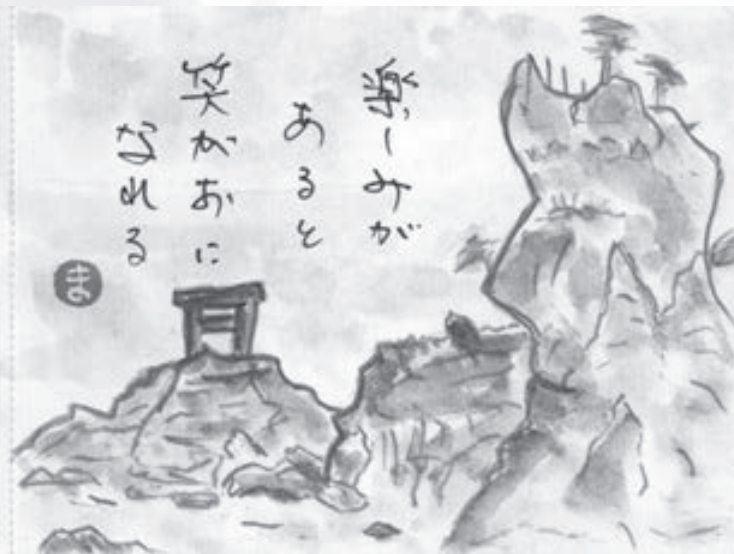 楽しみが
あると
笑がおに
なれる
ま